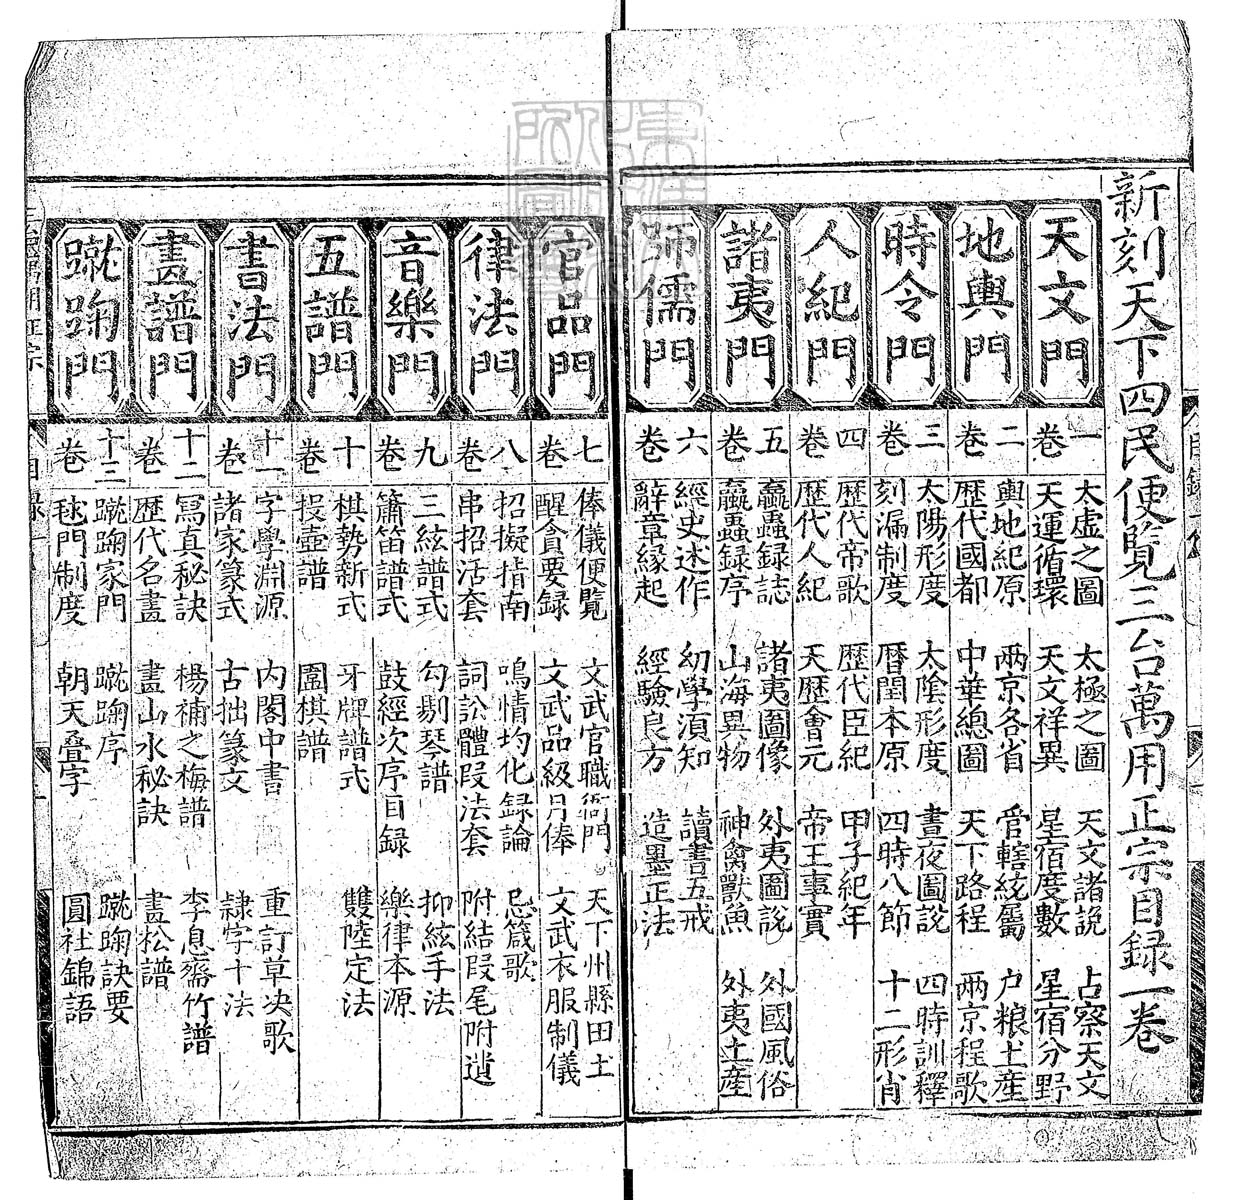 新刻天下四民便覽三台萬用正宗目錄一卷
天文門
一卷
太虛之圖　太極之圖　天文諸說　占察天文
天運循環　天文祥異　星宿度數　星宿分野
地輿門
二卷
輿地紀原　兩京各省　管轄統屬　户粮土産
歷代國都　中華總圖　天下路程　兩京程歌
時令門
三卷
太陽形度　太陰形度　晝夜圖說　四時訓釋
刻漏制度　曆閏本原　四時八節　十二形肖
人紀門
四卷
歷代帝歌　歷代臣紀　甲子紀年
歷代人紀　天歷會元　帝王事實
諸夷門
五卷
臝蟲錄誌　諸夷圖像　外夷圖說　外國風俗
臝蟲錄序　山海異物　神禽獸魚　外夷土産
師儒門
六卷
經史述作　幼學須知　讀書五戒
辭章緣起　經驗良方　造墨正法
官品門
七卷
俸儀便覽　文武官職衙門　天下州縣田土
醒貪要録　文武品級月俸　文武衣服制儀
律法門
八卷
招擬指南　鳴情均化録論　忌箴歌
串招活套　詞訟體段法套　附結段尾附遺
音樂門
九卷
三絃譜式　勾剔琴譜　抑絃手法
簫笛譜式　鼓經次序目録　樂律本源
五譜門
十卷
棋勢新式　牙牌譜式　雙陸定法
投壺譜　圍棋譜
書法門
十一卷
字學淵源　内閣中書　重訂草決歌
諸家篆式　古拙篆文　隸字十法
畫譜門
十二卷
寫真秘訣　楊補之梅譜　李息齋竹譜
歷代名畫　畫山水秘訣　畫松譜
蹴踘門
十三卷
蹴踘家門　蹴踘序　蹴踘訣要
毬門制度　朝天叠字　圓社錦語